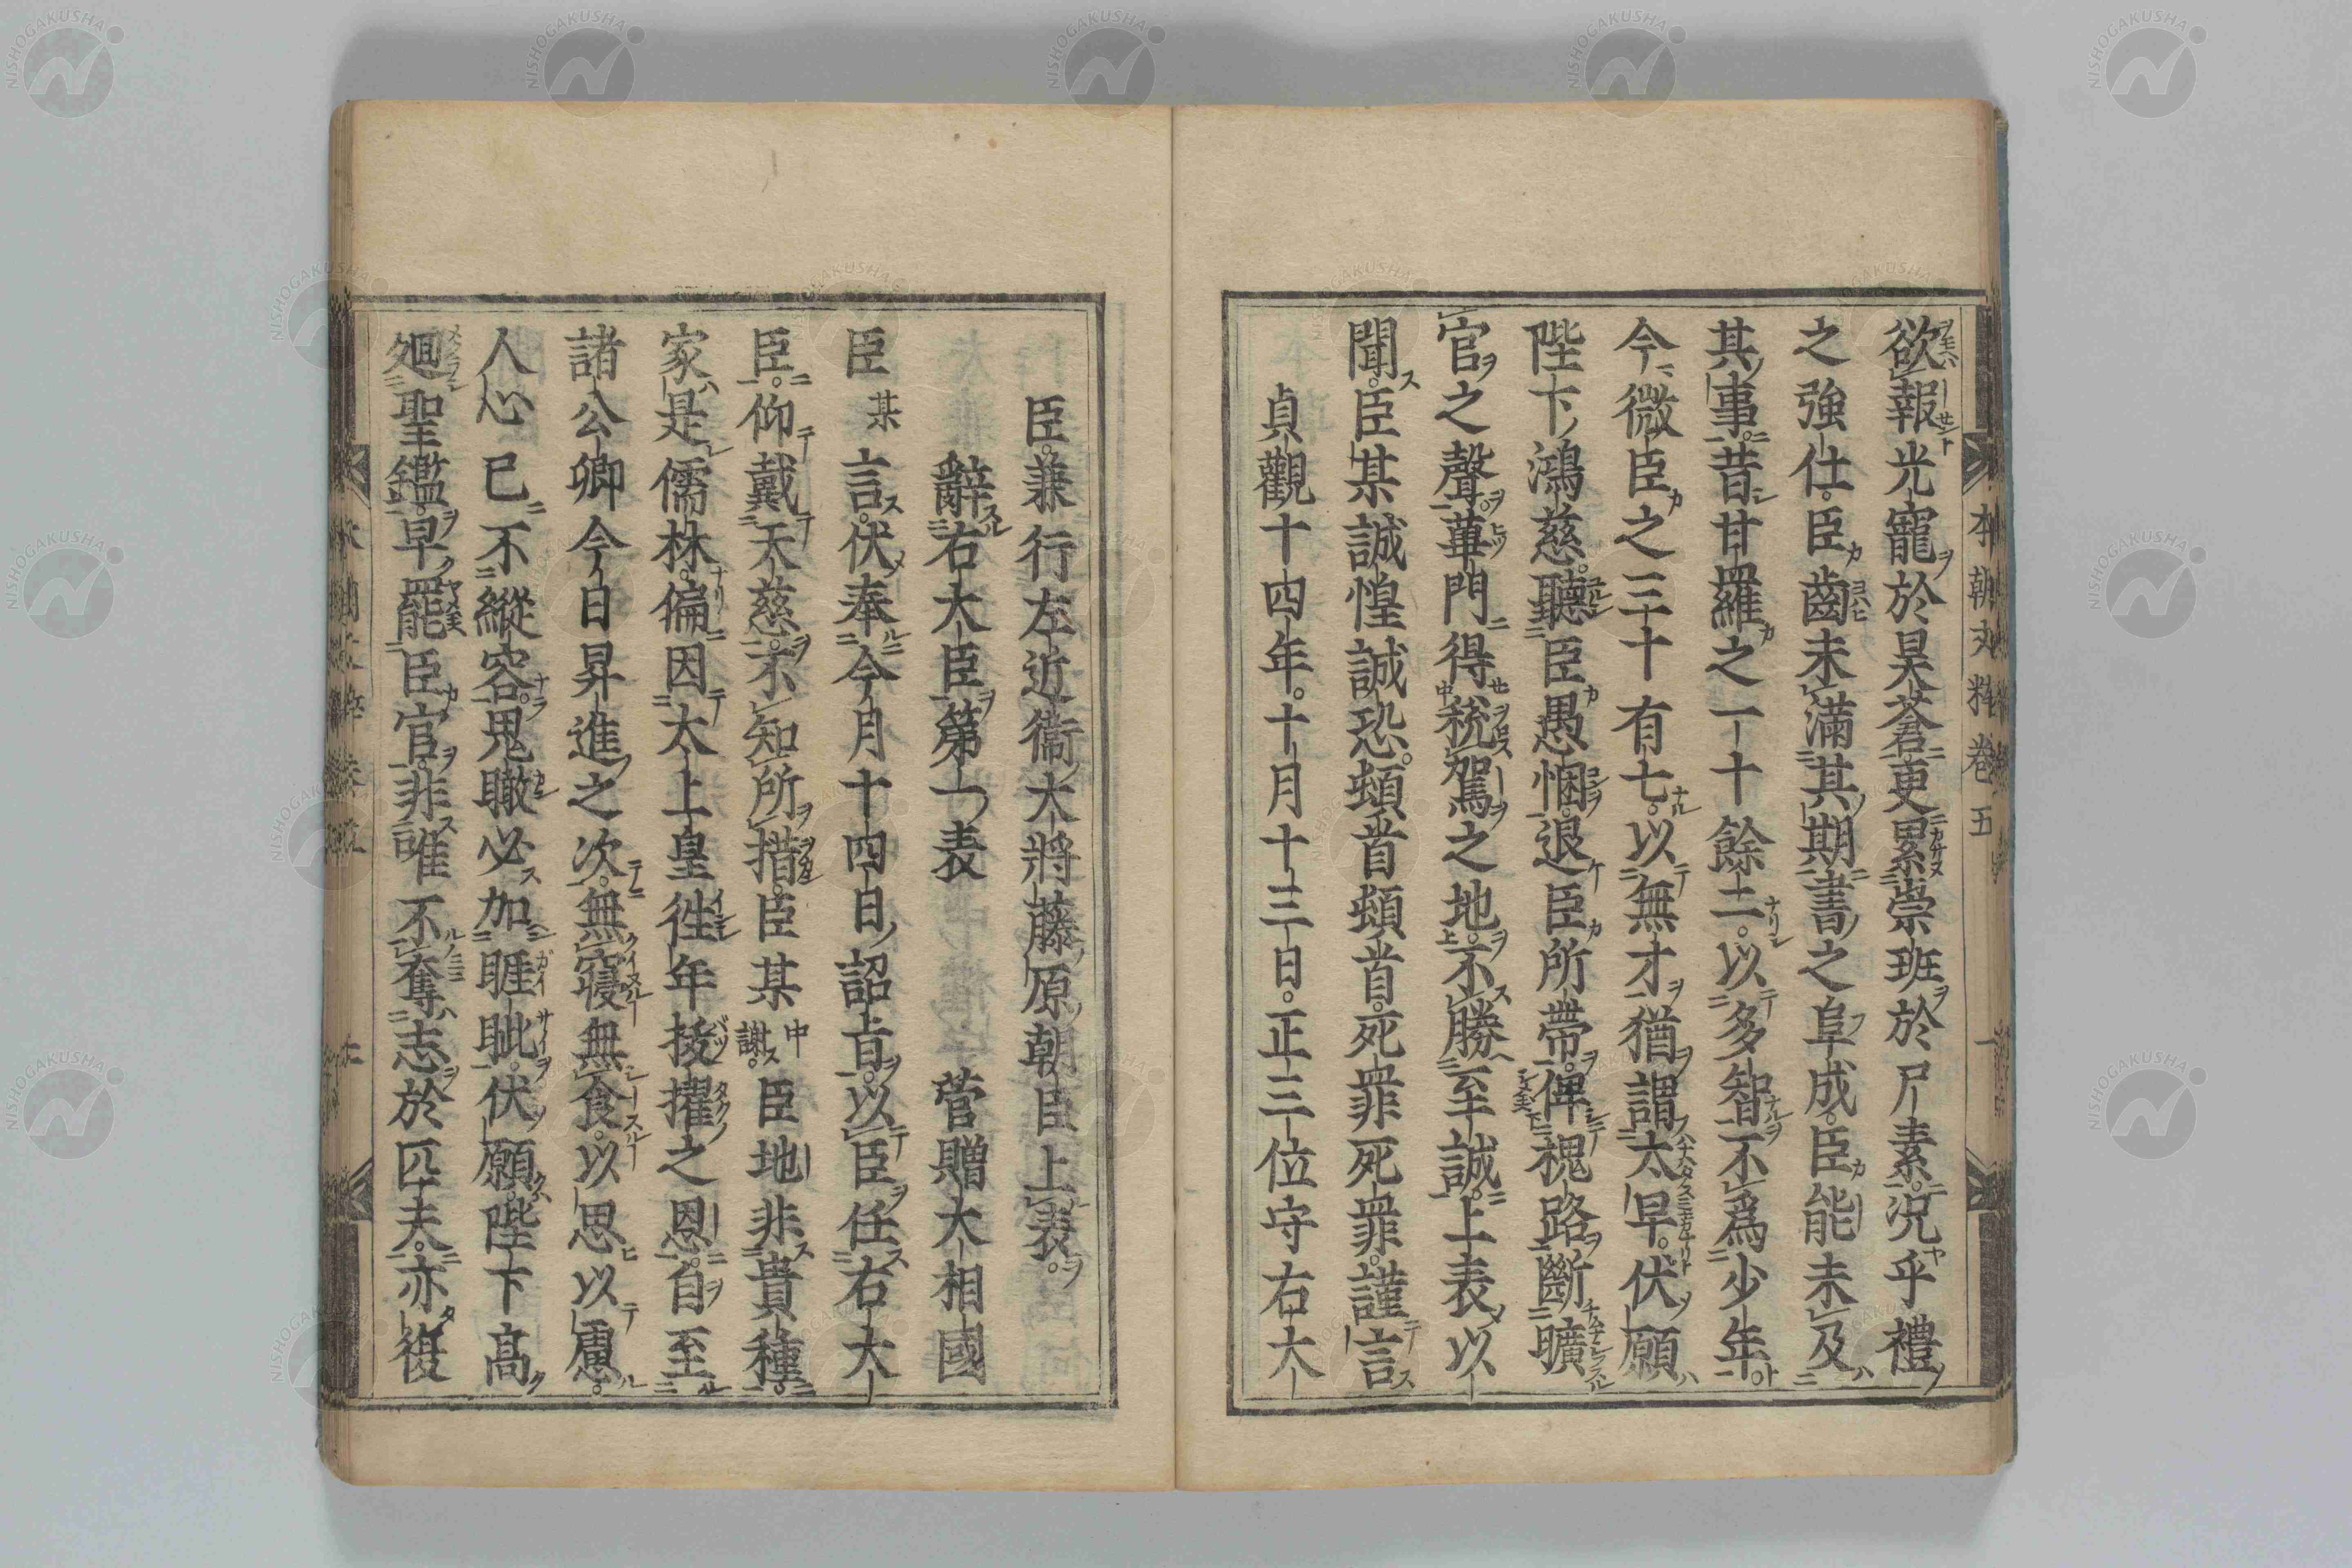 欲報光寵於昊蒼更累崇班於尸素況乎禮
之強仕臣齒未滿其期書之阜成臣能未及
其事昔甘羅之一十餘二以多智不爲少年
今微臣之三十有七以無才猶謂太早伏願
陛下鴻慈聽臣愚悃退臣所帶俾槐路斷曠
官之聲蓽門得稅駕之地不勝至誠上表以
聞臣某誠惶誠恐頓首頓首死罪死罪謹言
貞觀十四年十月十三日正三位守右大
臣兼行左近衞大將藤原朝臣上表
辭右大臣第一表 菅贈大相國
臣某言伏奉今月十四日詔旨以臣任右大
臣仰戴天慈不知所措臣某中謝臣地非貴種
家是儒林偏因太上皇往年拔擢之恩自至
諸公卿今日昇進之次無寢無食以思以慮
人心已不縱容鬼瞰必加睚眦伏願陛下高
廻聖鑑早罷臣官非唯不奪志於匹夫亦復
本朝文粹卷五